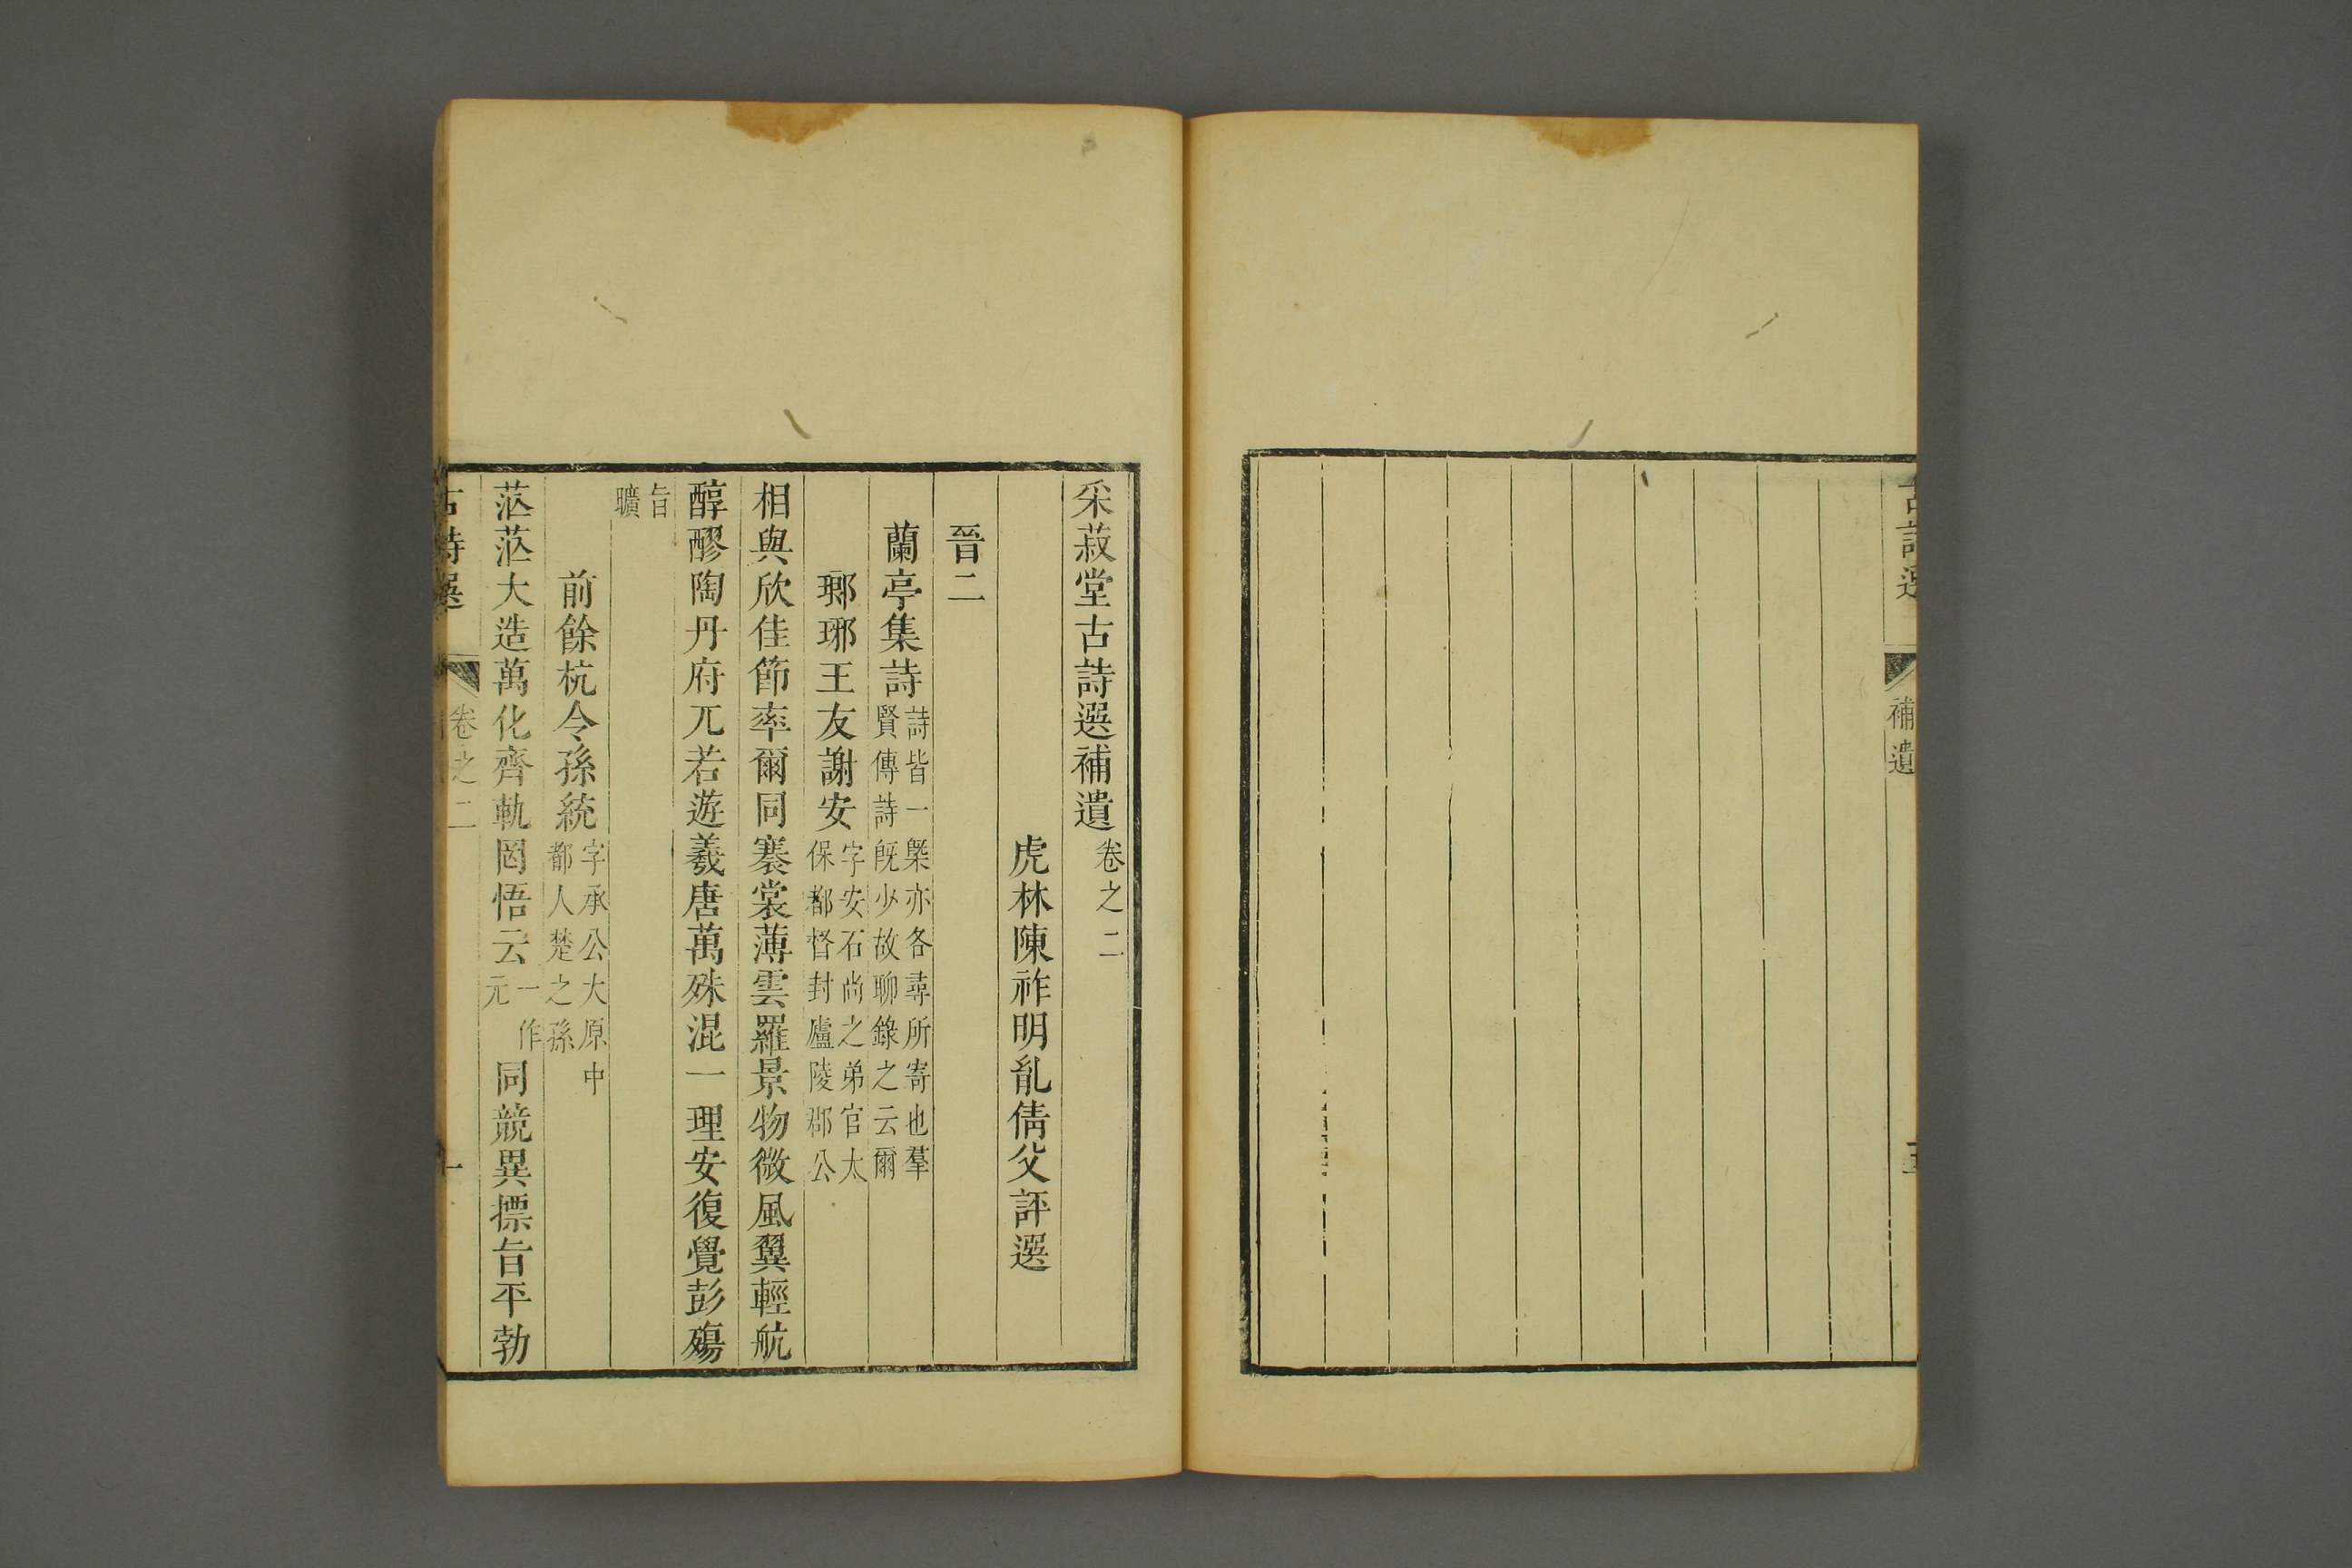 古詩選
補遺
采菽堂古詩選補遺卷之二
虎林陳祚明胤倩父評選
晉二
蘭亭集詩詩皆一槩亦各尋所寄也羣賢傳詩旣少故聊錄之云爾
瑯琊王友謝安字安石尚之弟官太保都督封廬陵郡公
相與欣佳節率爾同褰裳薄雲羅景物微風翼輕航
醇醪陶丹府兀若遊羲唐萬殊混一理安復覺彭殤
旨曠
前餘杭令孫統字承公大原中都人楚之孫
茫茫大造萬化齊軌罔悟云一作元同競異摽旨平勃
古詩選
卷之二
一